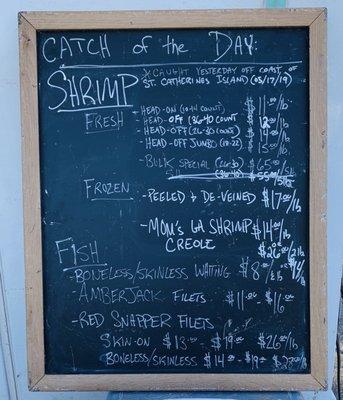 CATCH of the DAY:
SHRIMP * CAUGHT YESTERDAY OFF COAST OF
ST. CATHERINGS ISLAND (05/17/19)
FRESH - HEAD-ON (10-14 COUNT) $11.00/lb
- HEAD-OFF (36-40 COUNT 12
- HEAD-OFF (26-30 COUNT) $14
- HEAD-OFF JUMBO (18-22) 15
- BULK SPECIAL $65.00/5lb
$55.00/5lb
FROZEN - PEELED & DE-VEINED $17.00/lb
- MOM'S LA SHRIMP $14.00/lb
CREOLE $26.00/2lb
FISH
- BONELESS/SKINLESS WHITING $8.00
- AMBERJACK FILETS $11.00 - $16.00
- RED SNAPPER FILETS
SKIN-ON $13.00 - $19.00 $26.00/lb
BONELESS/SKINLESS $14.00 - $19.00 $28.00/lb